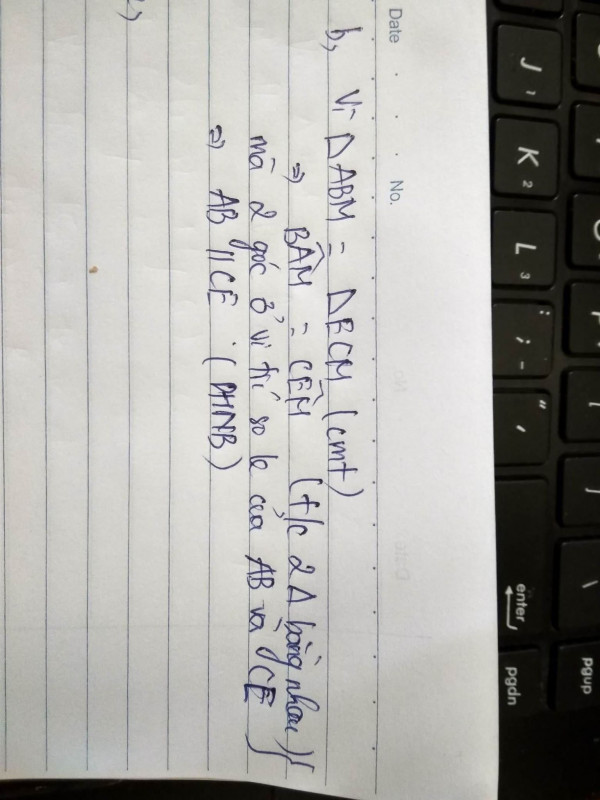 Date . . . No.
b, Vì ΔABM = ΔECM (cmt)
⇒ BÂM = CÊM (t/c 2 Δ bằng nhau)
mà 2 góc ở vị trí so le của AB và CE }
⇒ AB // CE . (DHNB)
J 1
K 2
L 3
; : -
" '
enter
pgup
pgdn
\